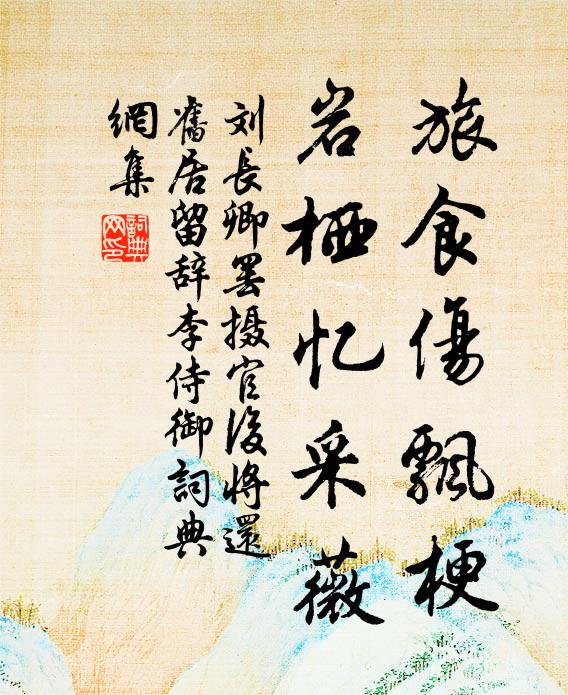 旅食傷飄梗
岩栖忆采薇
刘長卿罢摄官後將還
舊居留辞李侍御詞典
網集
詞典
网印